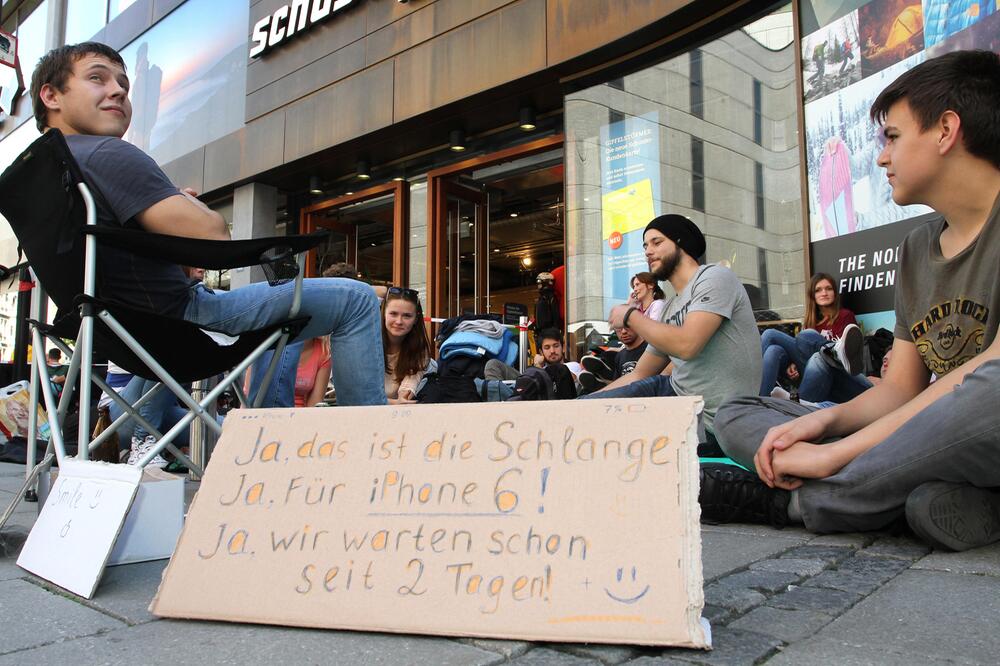 SCHUS
GIPFELSTÜRMER
Die neue Schuster
Kundenkarte!
NEU
THE NO
FINDEN
HARD ROCK
9:09
7%
Ja, das ist die Schlange
Ja, Für iPhone 6!
Ja, wir warten schon
seit 2 Tagen!
Smile